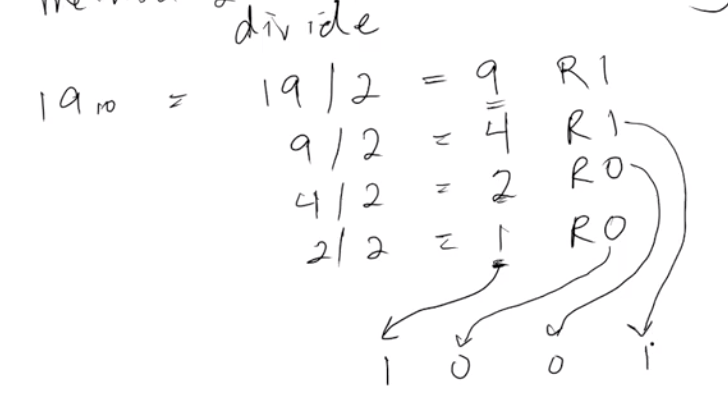 divide
19₁₀ = 19/2 = 9 R1
9/2 = 4 R1
4/2 = 2 R0
2/2 = 1 R0
1 0 0 1